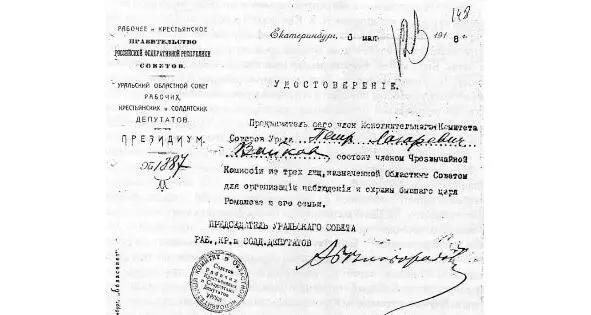 148
РАБОЧЕЕ и КРЕСТЬЯНСКОЕ
ПРАВИТЕЛЬСТВО
РОССІЙСКОЙ ФЕДЕРАТИВНОЙ РЕСПУБЛИКИ
СОВЕТОВ.
УРАЛЬСКИЙ ОБЛАСТНОЙ СОВЕТ
РАБОЧИХ,
КРЕСТЬЯНСКИХ и СОЛДАТСКИХ
ДЕПУТАТОВ.
ПРЕЗИДИУМ.
1887
Екатеринбург, мая 1918 г.
УДОСТОВЕРЕНІЕ.
Предъявитель сего член Исполнительнаго Комитета
Советов Урала Петр Лазаревич
Войков, состоит членом Чрезвичайной
Комиссіи из трех лиц, назначенной Областным Советом
для организаціи наблюденія и охраны бывшаго царя
Романова и его семьи.
ПРЕДСЕДАТЕЛЬ УРАЛЬСКАГО СОВЕТА
РАБ., КР. и СОЛД. ДЕПУТАТОВ
Советов
Рабочих
Крестьянских
и Солдатских
Депутатов
УРАЛА